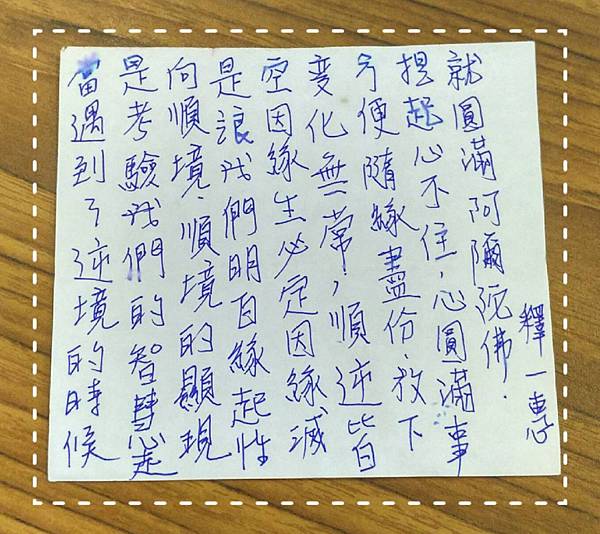 當遇到了逆境的時候
是考驗我們的智慧走
向順境,順境的顯現
是浪我們明白緣起性
空因緣生必定因緣滅
變化無常,順逆皆
方便隨緣盡份.放下
提起心不住,心圓滿事
就圓滿阿彌陀佛.
釋一惠